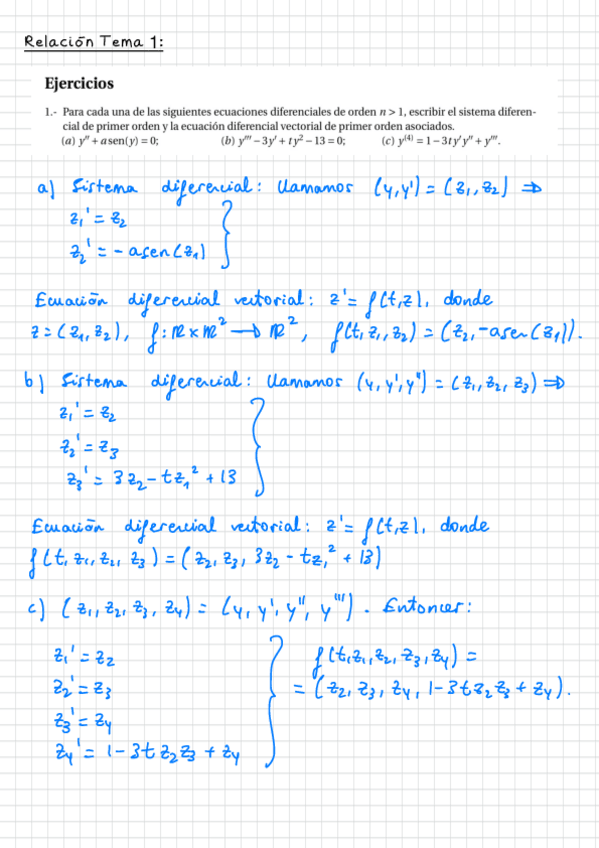 Relación Tema 1:
Ejercicios
1.- Para cada una de las siguientes ecuaciones diferenciales de orden n > 1, escribir el sistema diferen-
cial de primer orden y la ecuación diferencial vectorial de primer orden asociados.
(a) y'' + a sen(y) = 0; (b) y''' − 3y' + ty² − 13 = 0; (c) y⁽⁴⁾ = 1 − 3ty'y'' + y'''.
a) Sistema diferencial: llamamos (y, y') = (z₁, z₂) ⇒
z₁' = z₂
z₂' = - a sen(z₁)
Ecuación diferencial vectorial: z' = f(t,z), donde
z = (z₁, z₂), f: ℝ x ℝ² → ℝ², f(t, z₁, z₂) = (z₂, -a sen(z₁)).
b) Sistema diferencial: llamamos (y, y', y'') = (z₁, z₂, z₃) ⇒
z₁' = z₂
z₂' = z₃
z₃' = 3z₂ - tz₁² + 13
Ecuación diferencial vectorial: z' = f(t,z), donde
f(t, z₁, z₂, z₃) = (z₂, z₃, 3z₂ - tz₁² + 13)
c) (z₁, z₂, z₃, z₄) = (y, y', y'', y'''). Entonces:
z₁' = z₂
z₂' = z₃
z₃' = z₄
z₄' = 1 - 3t z₂z₃ + z₄
f(t, z₁, z₂, z₃, z₄) =
= (z₂, z₃, z₄, 1 - 3t z₂z₃ + z₄).